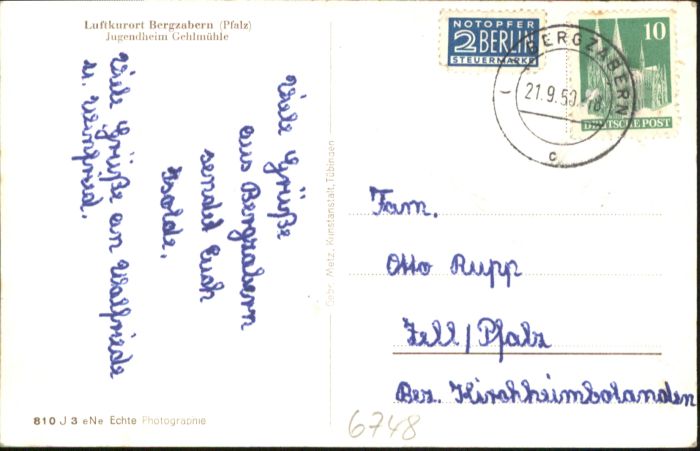 Luftkurort Bergzabern (Pfalz)
Jugendheim Gehlmühle
Viele Grüße
aus Bergzabern
sendet Euch
Isolde.
Viele Grüße an Walfriede
u. Weinfried.
Gebr. Metz, Kunstanstalt, Tübingen
810 J 3 eNe Echte Photographie
NOTOPFER
2 BERLIN
STEUERMARKE
10
DEUTSCHE POST
BERGZABERN
21.9.50.-18
c
Fam.
Otto Rupp
Zell/Pfalz
Bez. Kirchheimbolanden
6748